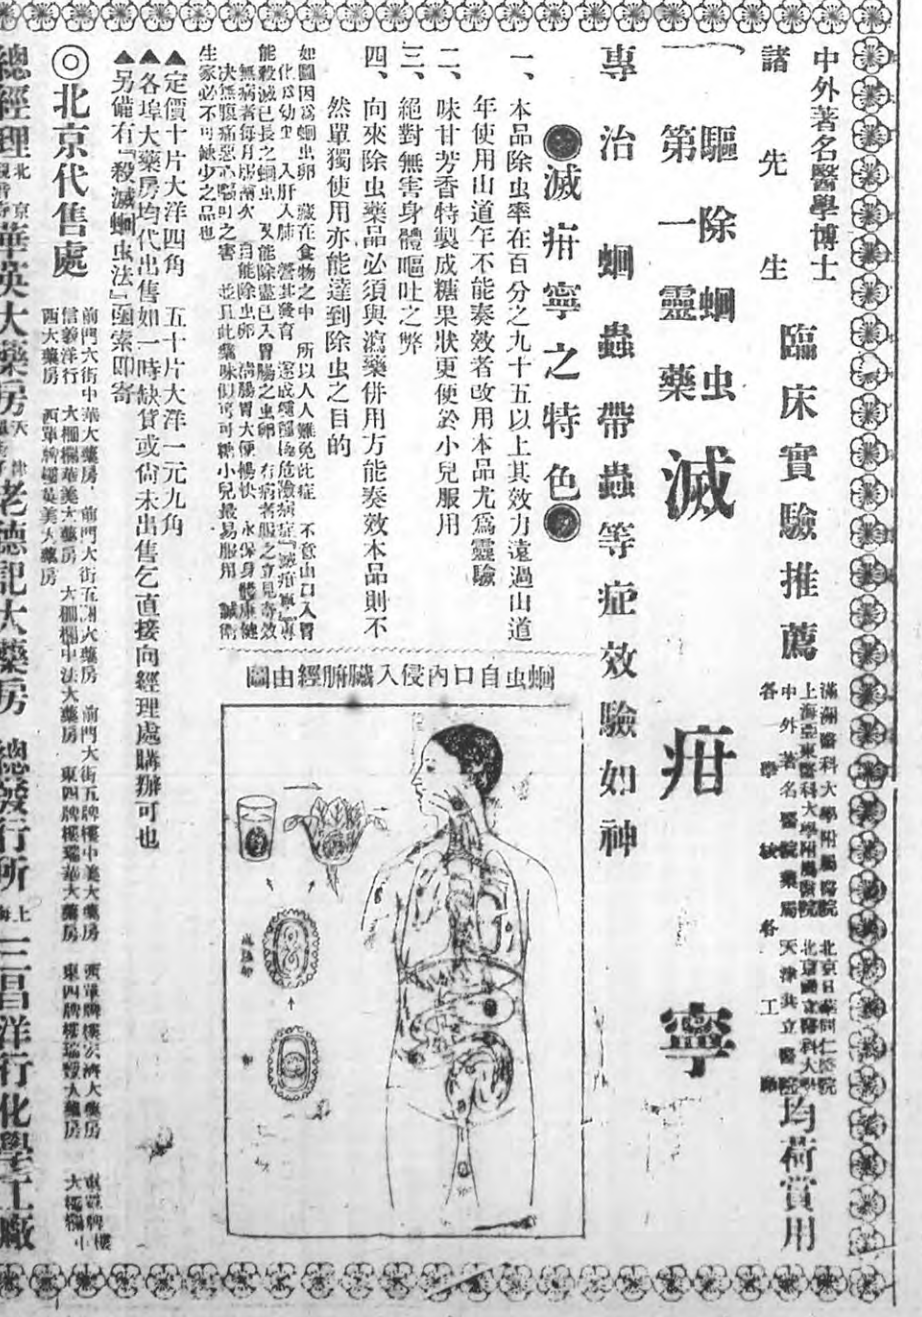 中外著名醫學博士
諸先生
臨床實驗推薦
滿洲醫科大學附屬醫院
上海亞東醫科大學附屬醫院
中外著名醫院藥局
各學校各工
北京日華同仁醫院
北京國立醫科大學
天津共立醫院
均荷賞用
驅除蛔虫
第一靈藥
滅疳寧
專治蛔蟲帶蟲等症效驗如神
滅疳寧之特色
一、本品除虫率在百分之九十五以上其效力遠過山道
年使用山道年不能奏效者改用本品尤爲靈驗
二、味甘芳香特製成糖果狀更便於小兒服用
三、絕對無害身體嘔吐之弊
四、向來除虫藥品必須與瀉藥併用方能奏效本品則不
然單獨使用亦能達到除虫之目的
蛔虫自口內侵入臟腑經由圖
如圖因爲蛔虫卵 藏在食物之中 所以人人難免此症 不意由口入胃
化爲幼虫 入肝入肺 營其發育 遂成種種危險病症『滅疳寧』專
能殺滅已長之蛔虫 又能除盡已入胃腸之虫卵 有病者服之立見奇效
無病者每月服兩次 自能除虫卵 清腸胃大便暢快 永保身體康健
決無腹痛惡心嘔吐之害 並且此藥味似可可糖小兒最易服用 誠衛
生家必不可缺少之品也
▲定價十片大洋四角 五十片大洋一元九角
▲各埠大藥房均代出售如一時缺貨或尙未出售乞直接向經理處購辦可也
▲另備有『殺滅蛔虫法』函索即寄
◎北京代售處
前門大街中華大藥房 前門大街五洲大藥房 前門大街瓦牌樓中美大藥房 西單牌樓宏濟大藥房 東單牌樓
信義洋行 大柵欄華美大藥房 大柵欄中法大藥房 東四牌樓瑞華大藥房 東四牌樓 大藥房 大柵欄中
西大藥房 西單牌樓華美大藥房
總經理 北京 華英大藥房 天津 老德記大藥房 總發行所 上海 三昌洋行化學工廠